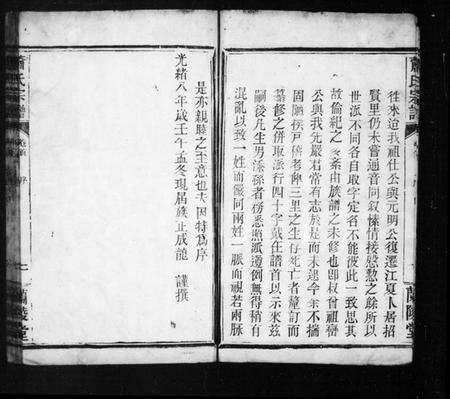 蕭氏宗譜
蘭陵堂
往來迨我祖仕公與元明公復遷江夏人居招
賢里仍未嘗通音問敘情接慇懃之餘所以
世派不同各自取字定名不能彼此一致思其
故倫紀之紊由族譜之未修也即叔曾祖㟽
公與我先嚴君常有志於是而未逮今余不揣
固陋挨戶稽考仰三里之生存死亡者釐訂而
纂修之併取派行四十字戴在譜首以示來茲
嗣後凡生男添孫者務悉照派遵倒無得稍有
混亂以致一姓而儼同兩姓一脈而視若兩脈
是亦親睦之至意也夫因特為序
光緒八年歲壬午孟冬現居 正成龍 謹撰
蕭氏宗譜
序
一
蘭陵堂